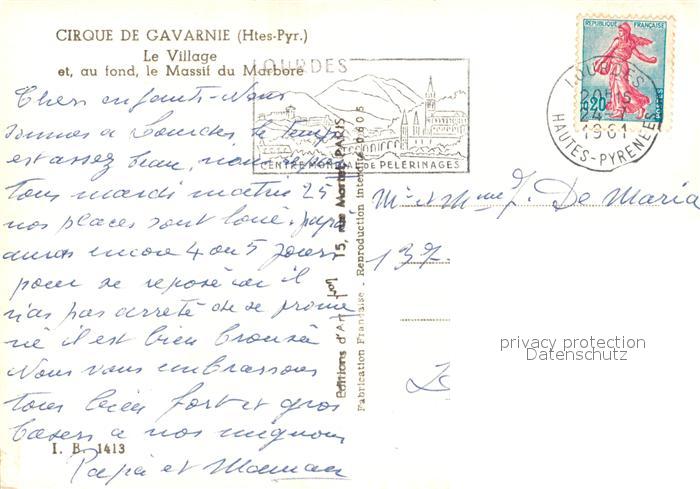 CIRQUE DE GAVARNIE (Htes-Pyr.)
Le Village
et, au fond, le Massif du Marboré
Chers enfants. Nous
sommes a Lourdes le temps
est assez beau, nous
tous mardi matin 25
nos places sont loué. papa
auras encore 4 ou 5 jours
pour se reposé car il
n'as pas arreté de se prome
né il est bien bronzé
Nous vous embrassons
tous bien fort et gros
basers a nos mignons
Papa et Maman
I. B. 1413
LOURDES
CENTRE MONDIAL DE PELERINAGES
Editions d'Art 15, rue Martel PARIS
Fabrication Française - Reproduction interdite
REPUBLIQUE FRANÇAISE
0,20
POSTES
LOURDES
1961
HAUTES-PYRENEES
Mr et Mme J. De Maria
137
privacy protection
Datenschutz